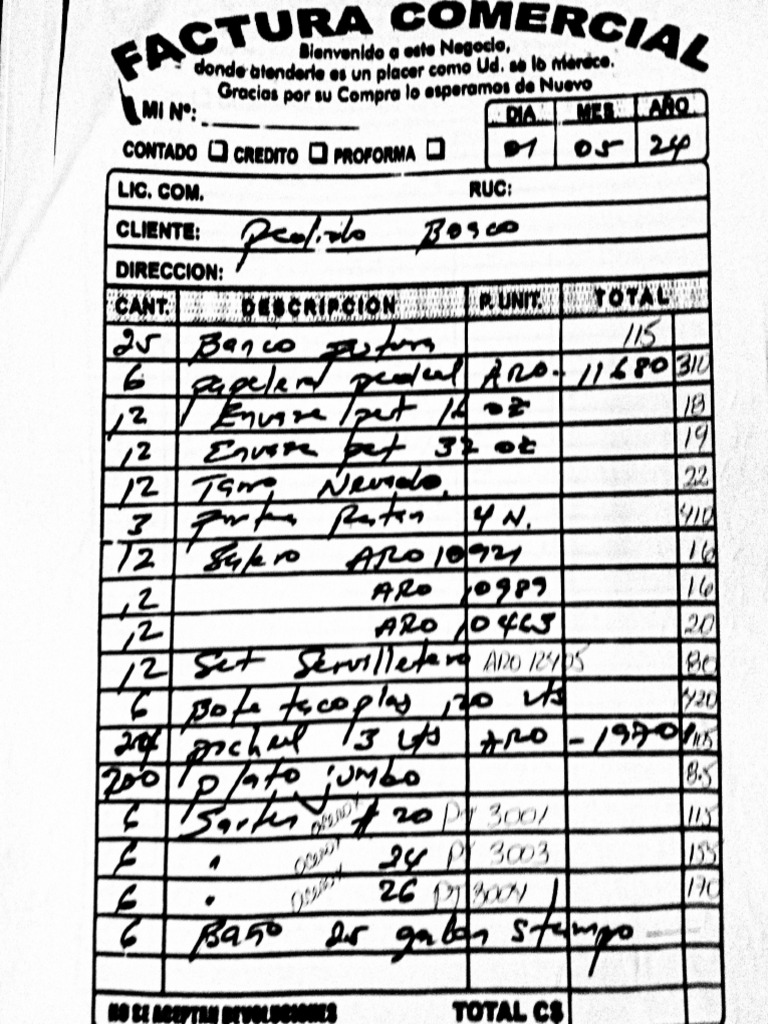 FACTURA COMERCIAL
Bienvenido a este Negocio,
donde atenderle es un placer como Ud. se lo merece.
Gracias por su Compra lo esperamos de Nuevo
MI Nº:
DIA MES AÑO
CONTADO CREDITO PROFORMA
01 05 24
LIC. COM. RUC:
CLIENTE: Pedido Bosco
DIRECCION:
CANT. DESCRIPCION P. UNIT. TOTAL
25 Banco 115
6 papelera pedal ARO - 11680 310
12 Envase pet 16 oz 18
12 Envase pet 32 oz 19
12 Tarro Nevado 22
3 Ratan 4 N. 410
12 Salero ARO 10921 16
12 ARO 10989 16
12 ARO 10463 20
12 Set Servilletero ARO 12405 80
6 Bote tacoplas 120 lts 420
24 pichel 3 lts ARO - 1970 115
200 plato jumbo 8.5
6 Sarten # 20 PT 3001 115
6 " 24 PT 3003 155
6 " 26 PT 3004 170
6 Baño 25 galon
NO SE ACEPTAN DEVOLUCIONES TOTAL C$